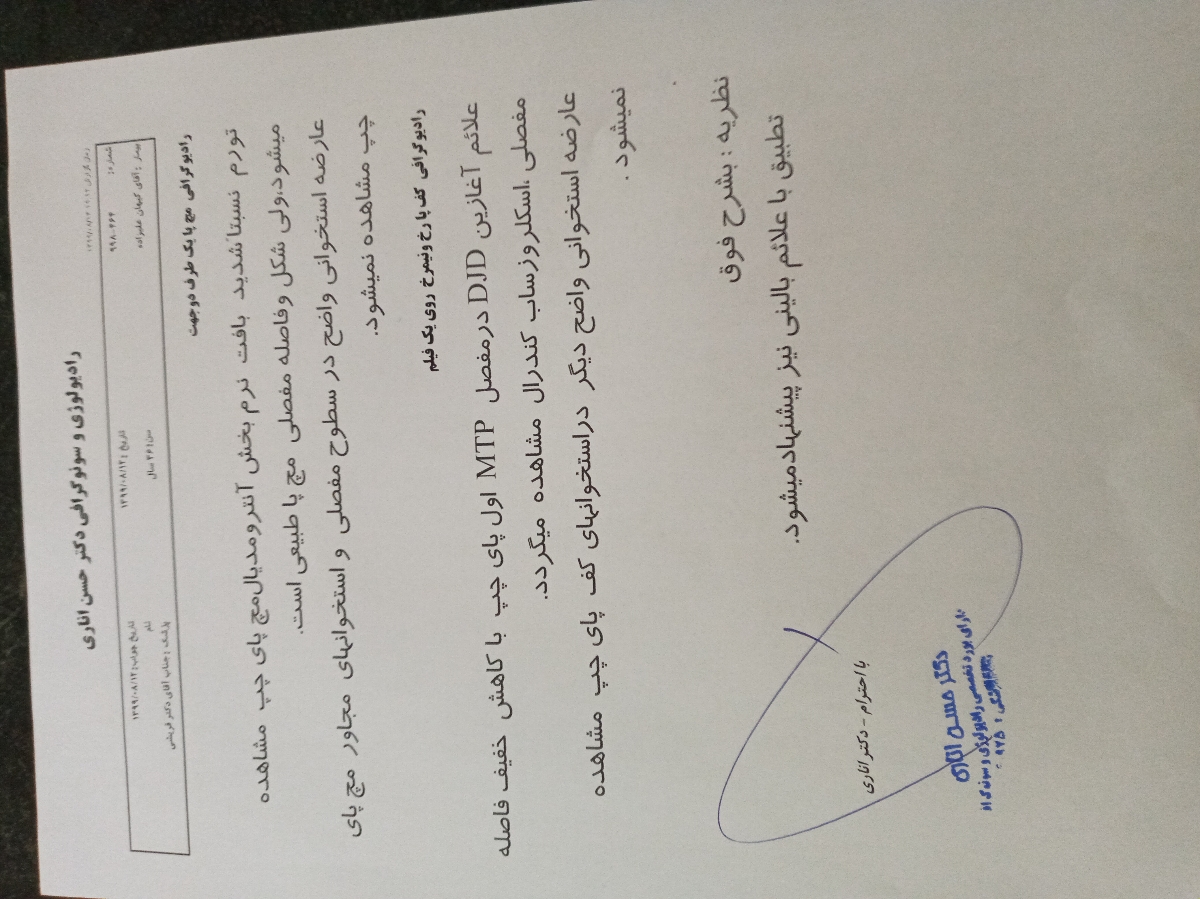 رادیولوژی و سونوگرافی دکتر حسن اناری
بیمار : آقای کیهان علیزاده سن: ۳۶ سال پزشک : جناب آقای دکتر قریشی
شماره: ۹۹۸-۲۶۴ تاریخ : ۱۳۹۹/۰۸/۱۲ تاریخ جواب: ۱۳۹۹/۰۸/۱۲
رادیوگرافی مچ پا یک طرف دو جهت
تورم نسبتا شدید بافت نرم بخش آنترومدیال مچ پای چپ مشاهده
میشود،ولی شکل وفاصله مفصلی مچ پا طبیعی است.
عارضه استخوانی واضح در سطوح مفصلی و استخوانهای مجاور مچ پای
چپ مشاهده نمیشود.
رادیوگرافی کف پا رخ ونیمرخ روی یک فیلم
علائم آغازین DJD درمفصل MTP اول پای چپ با کاهش خفیف فاصله
مفصلی ،اسکلروز ساب کندرال مشاهده میگردد.
عارضه استخوانی واضح دیگر دراستخوانهای کف پای چپ مشاهده
نمیشود .
نظریه : بشرح فوق
تطبیق با علائم بالینی نیز پیشنهادمیشود.
با احترام - دکتر اناری
دکتر حسن اناری
دارای بورد تخصصی رادیولوژی و سونوگرافی